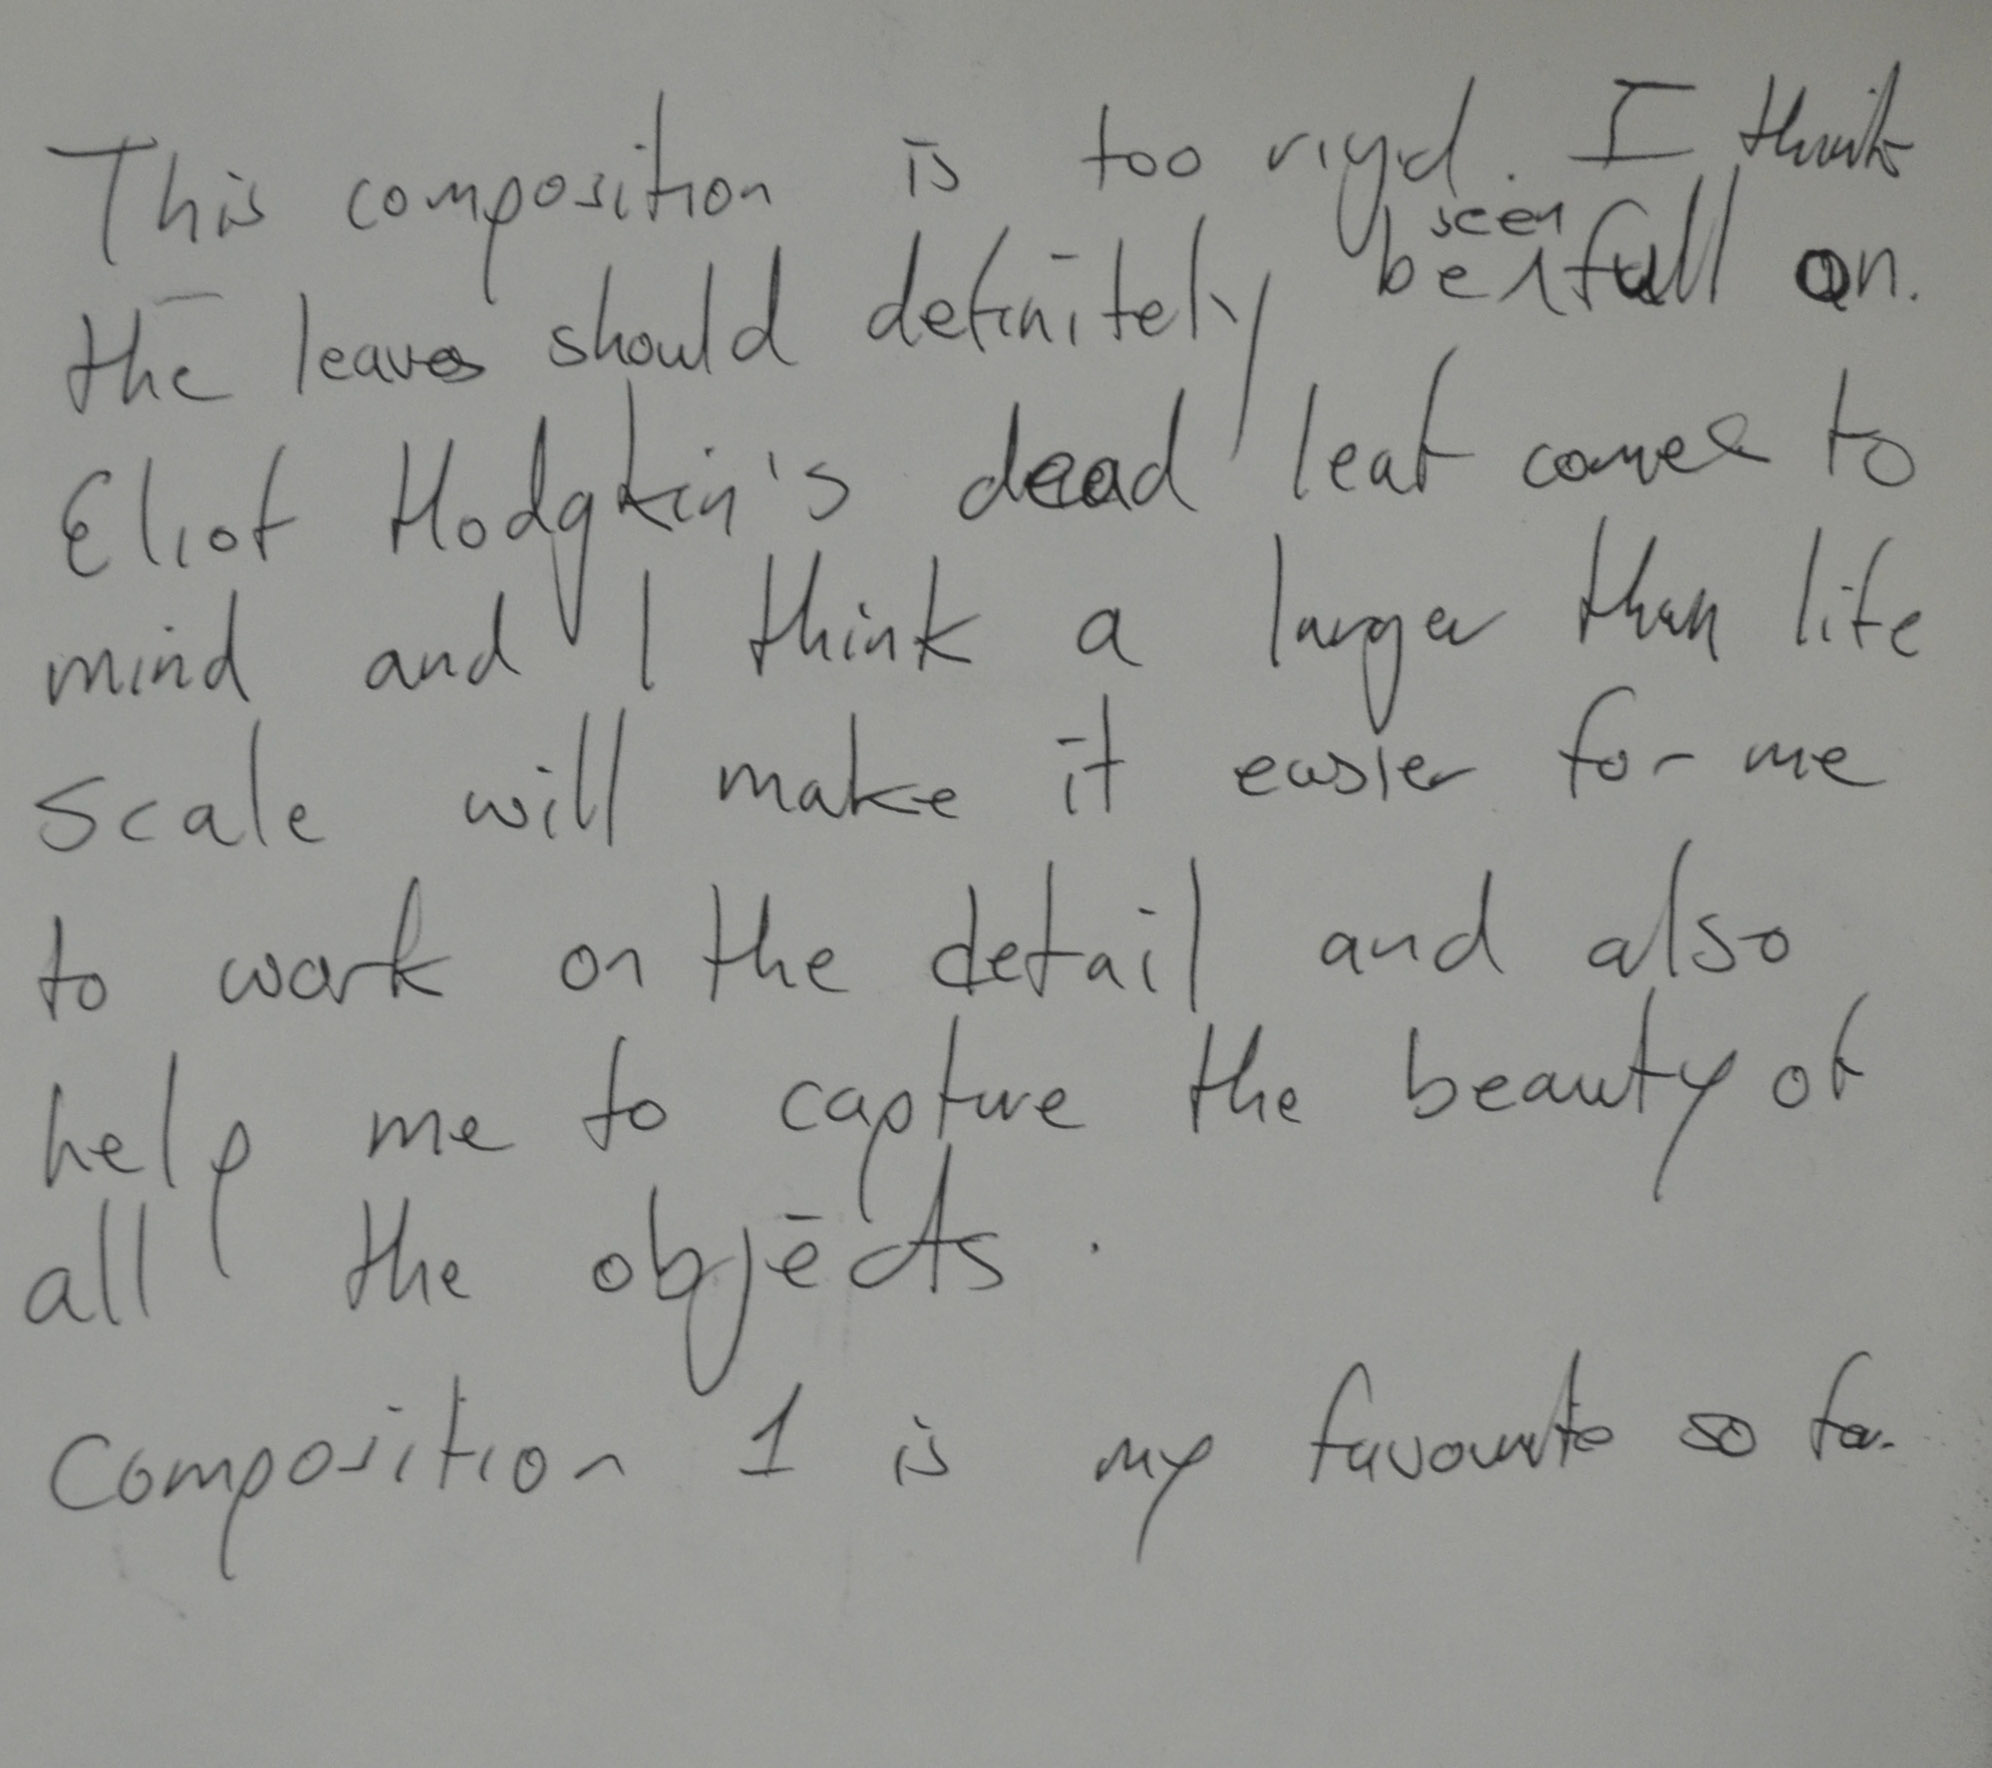 This composition is too rigid. I think
the leaves should definitely be seen full on.
Eliot Hodgkin's dead leaf comes to
mind and I think a larger than life
scale will make it easier for me
to work on the detail and also
help me to capture the beauty of
all the objects.
Composition 1 is my favourite so far.